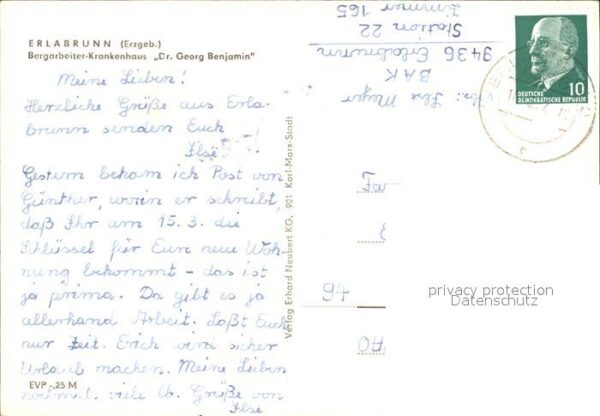 ERLABRUNN (Erzgeb.)
Bergarbeiter-Krankenhaus „Dr. Georg Benjamin"
Meine Lieben!
Herzliche Grüße aus Erla-
brunn senden Euch
Ilse
Gestern bekam ich Post von
Günther, worin er schreibt,
daß Ihr am 15.3. die
Schlüssel für Euere neue Woh-
nung bekommt - das ist
ja prima. Da gibt es ja
allerhand Arbeit. Laßt Euch
nur Zeit. Erich wird sicher
Urlaub machen. Meine Lieben
nochmal viele lb. Grüße von
Ilse
EVP -,25 M
Verlag Erhard Neubert KG, 901 Karl-Marx-Stadt
Ilse Meyer
BAK
9436 Erlabrunn
Station 22
Zimmer 165
10
DEUTSCHE
DEMOKRATISCHE REPUBLIK
94
privacy protection
Datenschutz